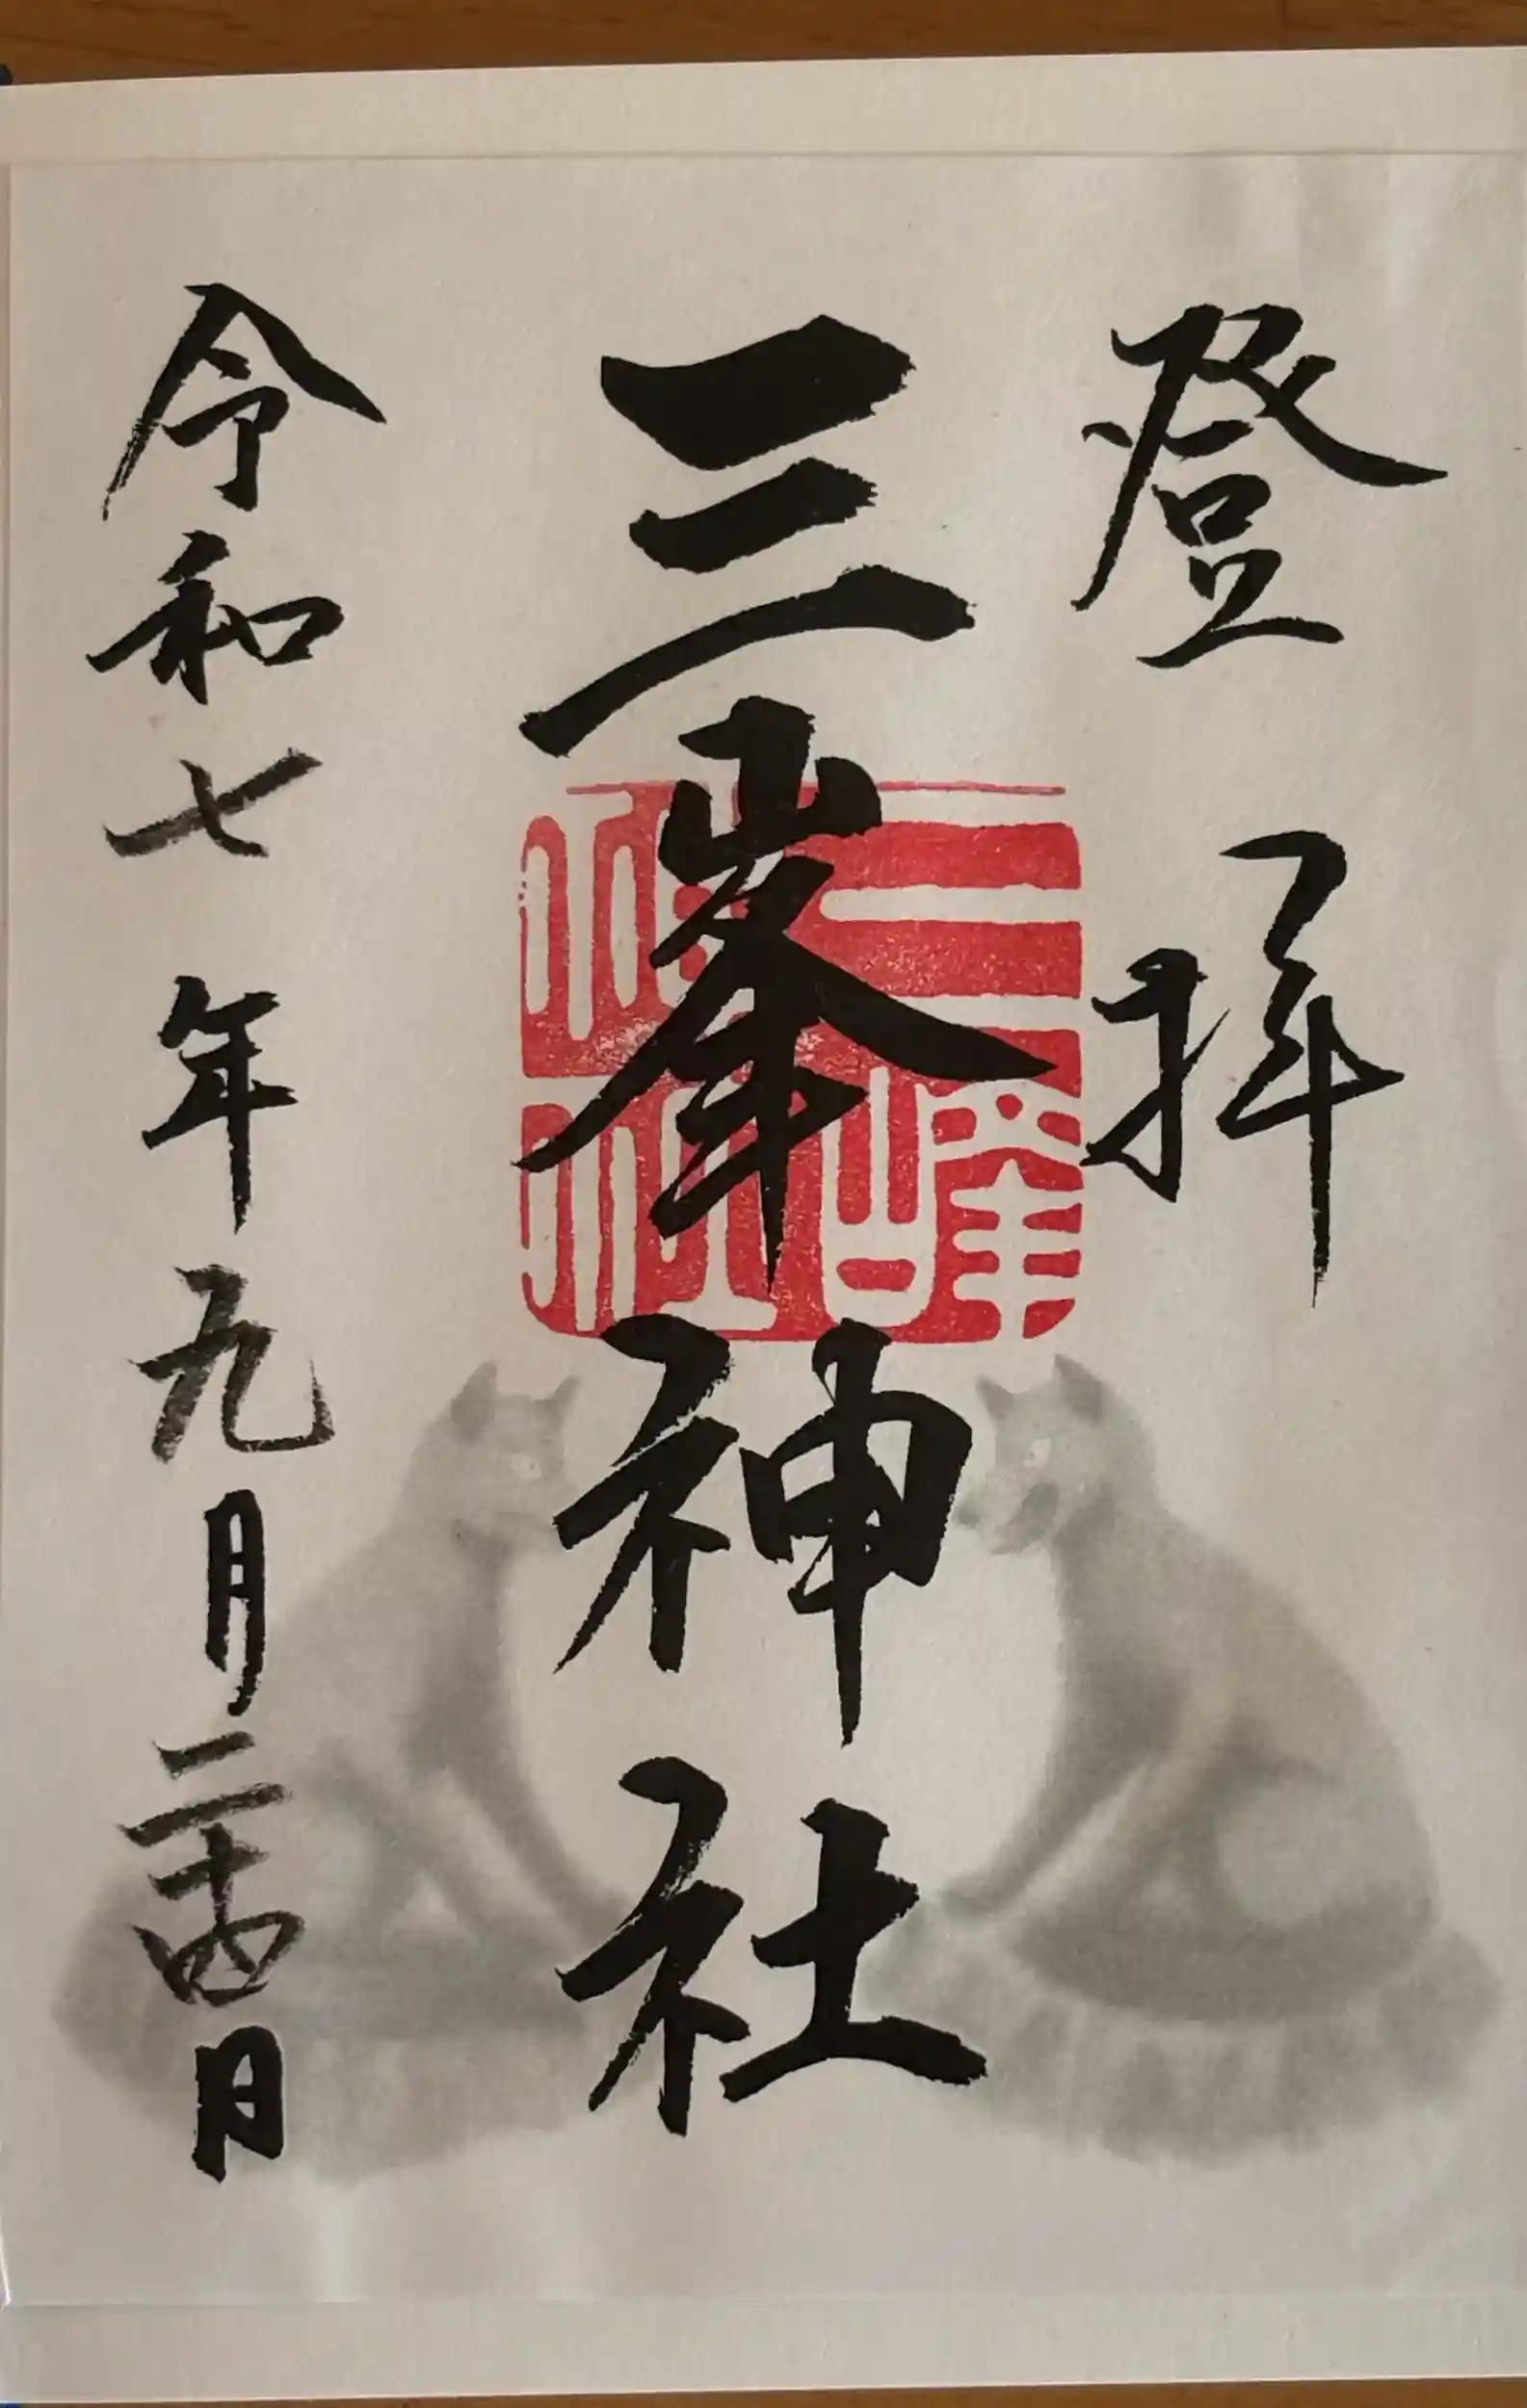 登拝
三峯神社
三峰神社
令和七年九月二十四日